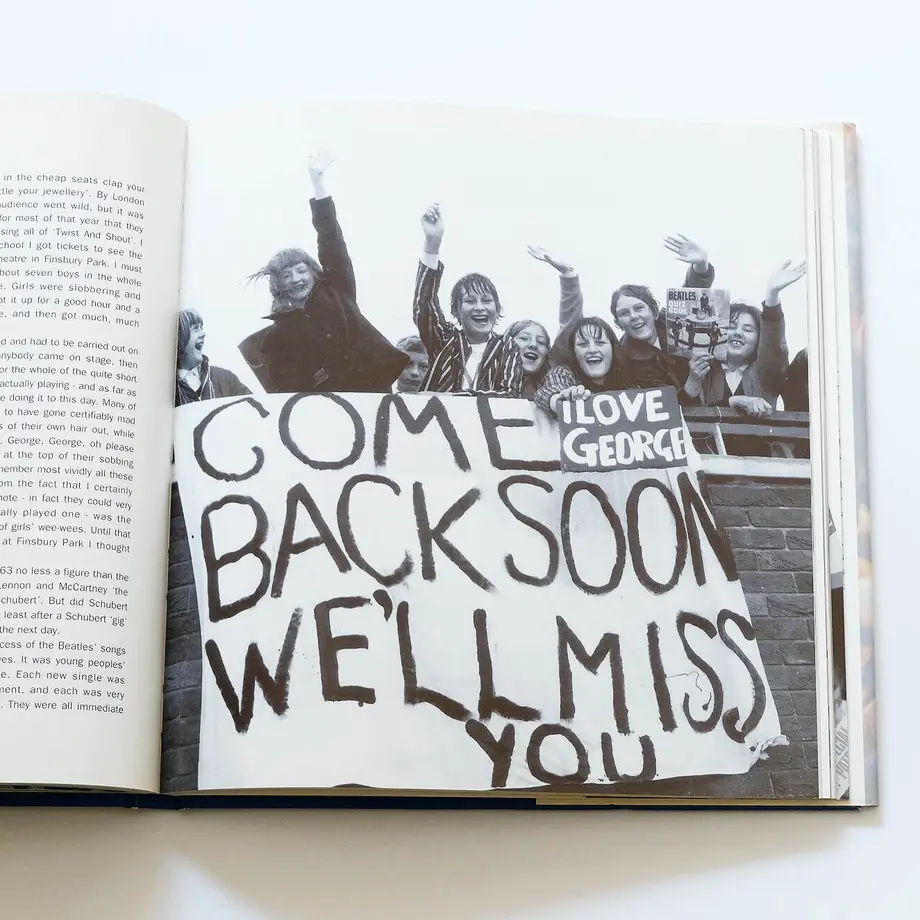 in the cheap seats clap your
tle your jewellery'. By London
udience went wild, but it was
for most of that year that they
sing all of 'Twist And Shout'. I
chool I got tickets to see the
eatre in Finsbury Park. I must
bout seven boys in the whole
e. Girls were slobbering and
pt it up for a good hour and a
e, and then got much, much
ed and had to be carried out on
nybody came on stage, then
or the whole of the quite short
actually playing - and as far as
e doing it to this day. Many of
to have gone certifiably mad
s of their own hair out, while
, George, George, oh please
at the top of their sobbing
member most vividly all these
om the fact that I certainly
note - in fact they could very
ally played one - was the
of girls' wee-wees. Until that
at Finsbury Park I thought
63 no less a figure than the
Lennon and McCartney 'the
chubert'. But did Schubert
least after a Schubert 'gig'
the next day.
cess of the Beatles' songs
ves. It was young peoples'
e. Each new single was
ment, and each was very
. They were all immediate
BEATLES
QUIZ
BOOK
I LOVE
GEORGE
COME
BACK SOON
WE'LL MISS
YOU